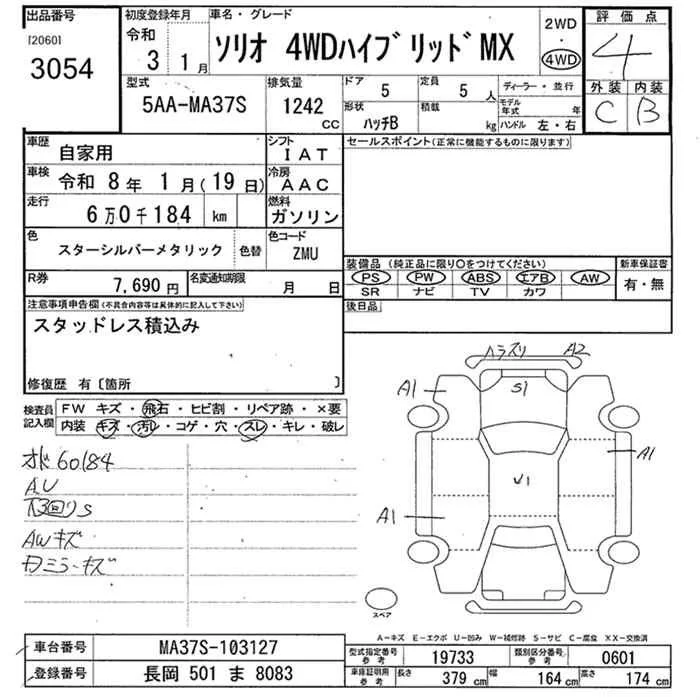 出品番号
[2060]
3054
初度登録年月
令和
3 1月
車名・グレード
ソリオ 4WDハイブリッドMX
2WD
・
4WD
評価点
4
外装 内装
C B
型式
5AA-MA37S
排気量
1242
cc
ドア
5
定員
5 人
形状
ハッチB
積載
kg
ディーラー・並行
モデル年式 年
ハンドル 左・右
車歴
自家用
シフト
IAT
車検
令和 8年 1月(19日)
冷房
AAC
走行
6万0千184 km
燃料
ガソリン
色
スターシルバーメタリック
色替
色コード
ZMU
R券
7,690円
名変通知期限
月 日
セールスポイント(正常に機能するものに限ります)
装備品 (純正品に限り○をつけてください)
PS PW ABS エアB AW
SR ナビ TV カワ
新車保証書
有・無
後日品
注意事項申告欄(不具合内容等は具体的に記入して下さい)
スタッドレス積込み
修復歴 有〔箇所 〕
検査員記入欄
FW キズ・飛石・ヒビ割・リペア跡・×要
内装 キズ・汚レ・コゲ・穴・スレ・キレ・破レ
オド60184
AU
下回りS
AWキズ
Rミラーキズ
ハラズリ A2
A1
S1
A1
U1
A1
スペア
A-キズ E-エクボ U-凹み W-補修跡 S-サビ C-腐食 XX-交換済
車台番号
MA37S-103127
登録番号
長岡 501 ま 8083
型式指定番号
参考
19733
類別区分番号
参考
0601
車庫証明用
参考
長さ
379 cm
幅
164 cm
高さ
174 cm